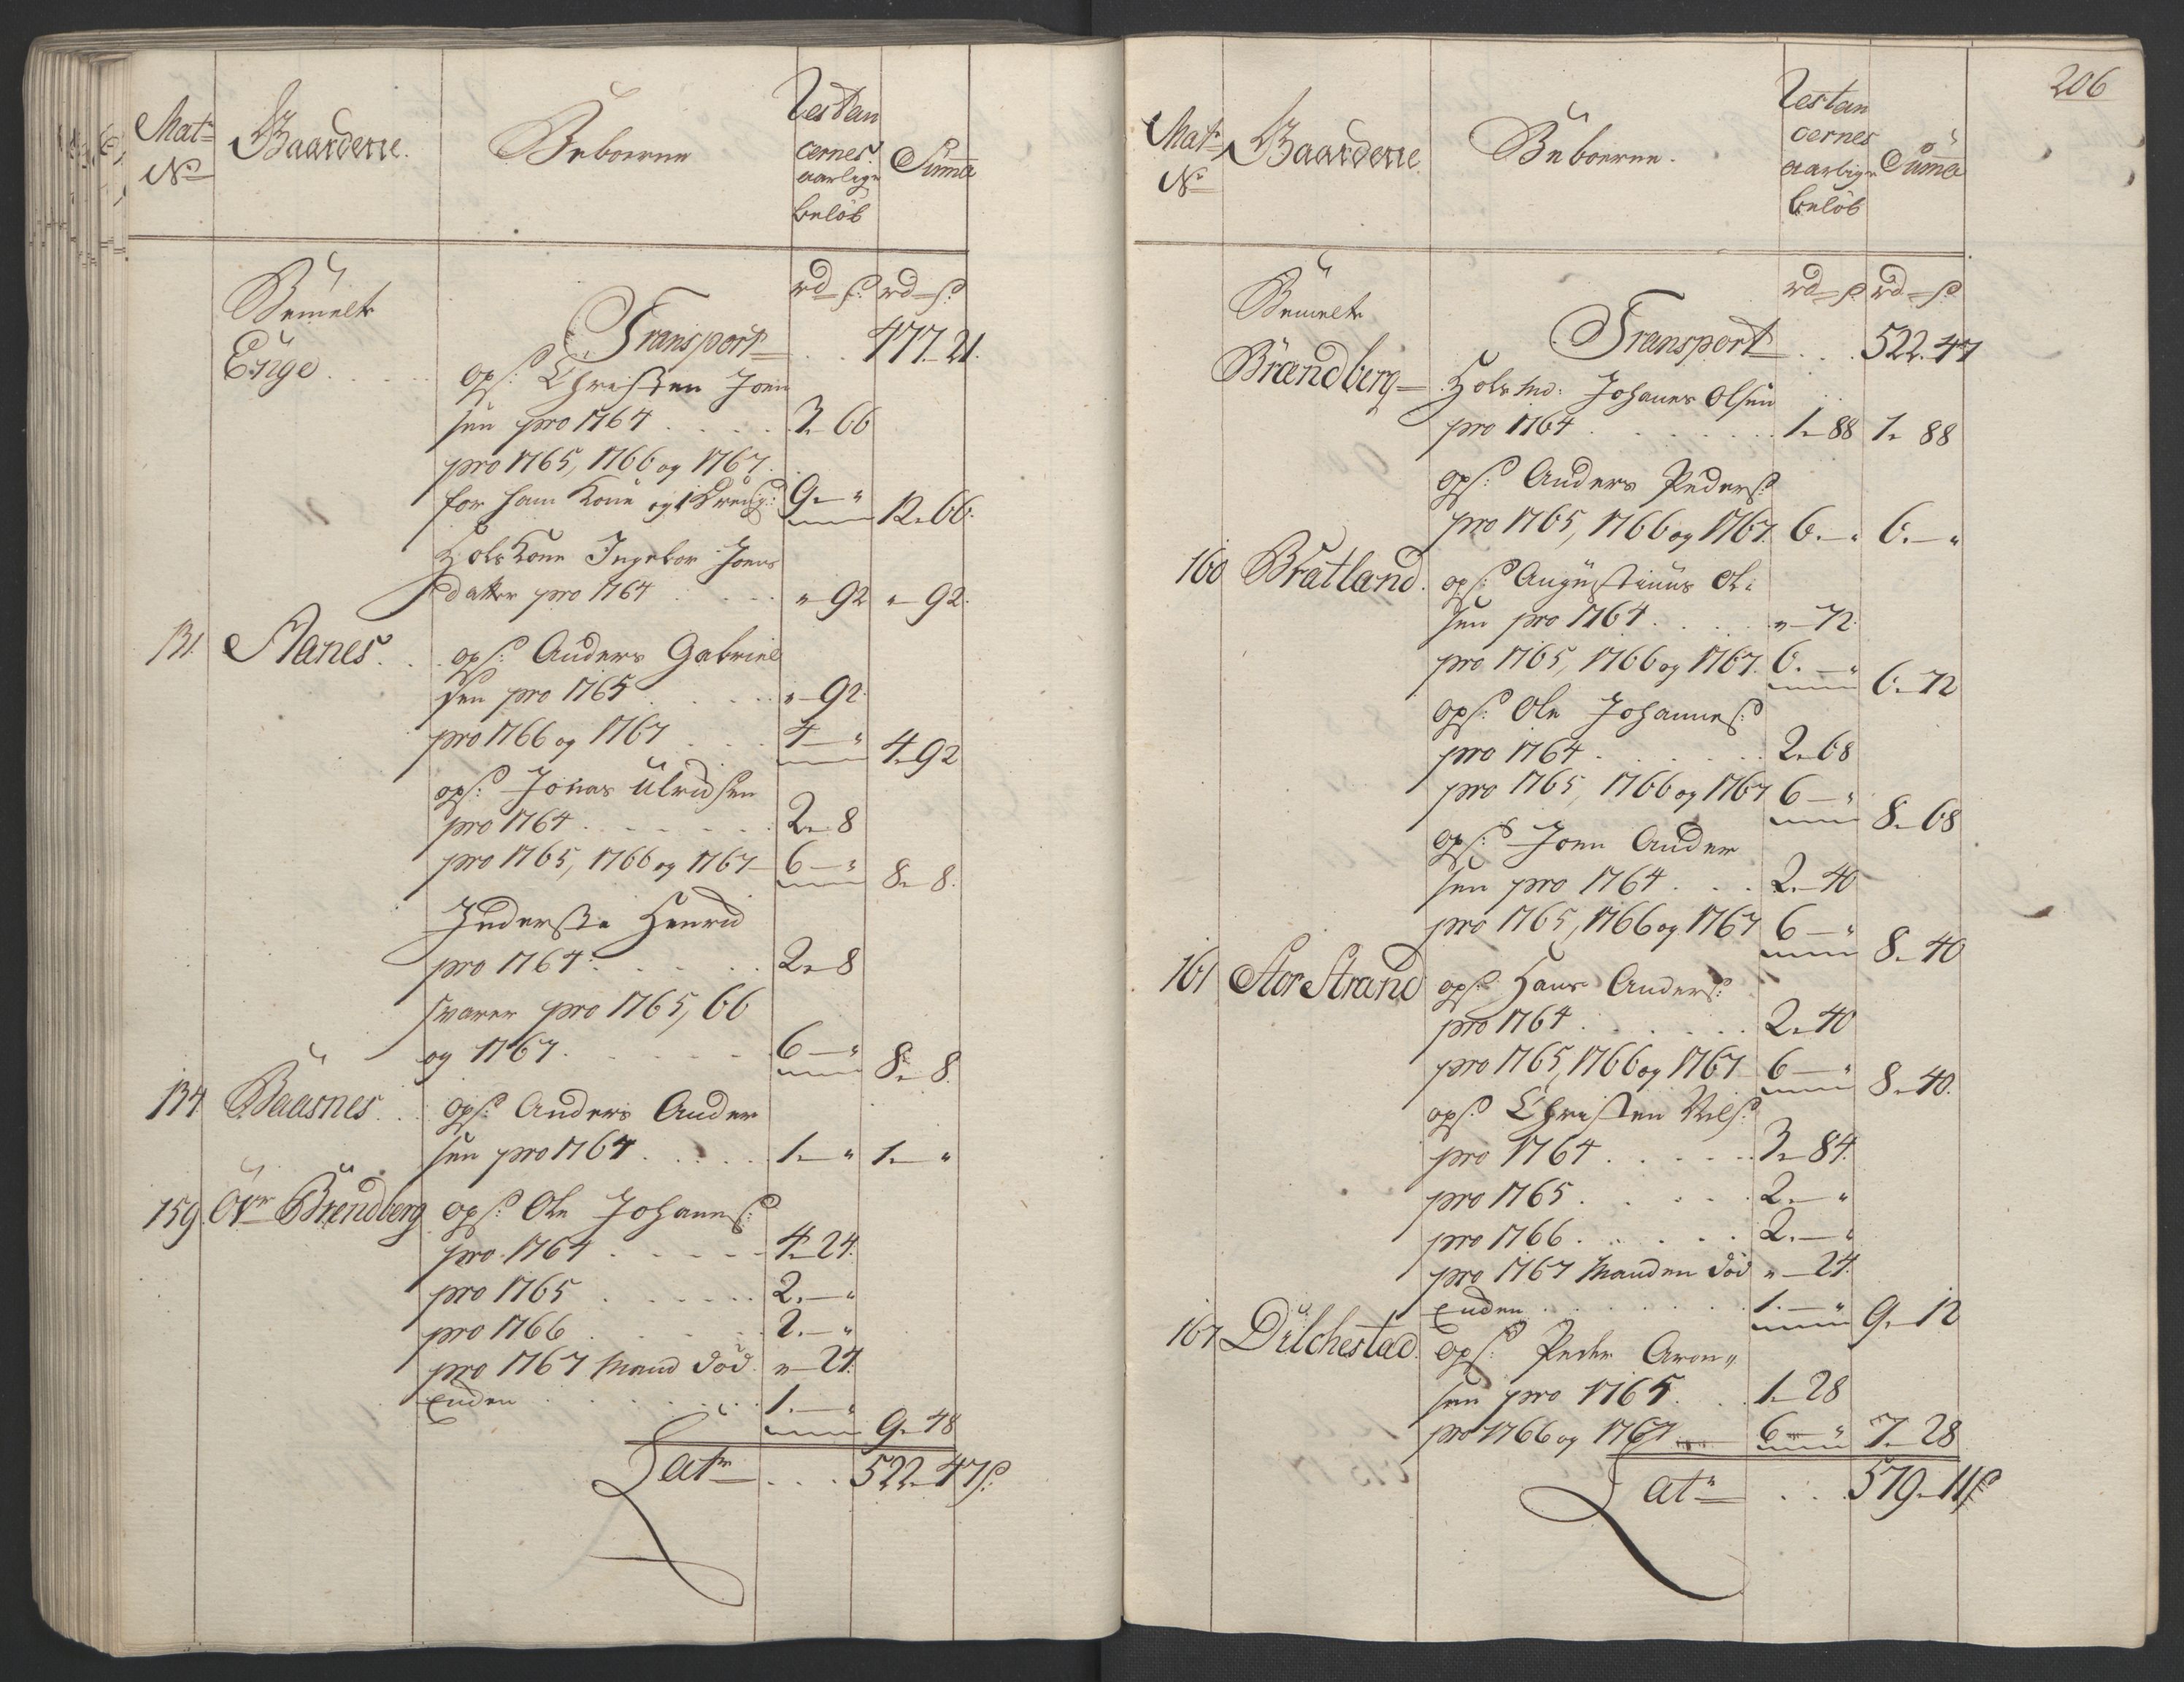 Matr
No
Gaardene.
Beboerne
Restan
cernes
aarlige
beløb
Summa
Bemelte
rd ſs rd ſs
Transport . . 477. 21.
Enge . . .
ops: Christen Jon
sen pro 1764 . . . . 3. 66
pro 1765, 1766 og 1767.
for ham Kone og 1 Dreng: 9. " 12. 66.
Hols Kone Ingebor Jons
datter pro 1764 . . . " 92 " 92.
131. Aanes . . ops: Anders Gabriel
sen pro 1765 . . . . " 92.
pro 1766 og 1767 . . . 4 " 4. 92
ops: Jonas Ulrichsen
pro 1764 . . . . . . 2. 8
pro 1765, 1766 og 1767 6 " 8. 8.
Inderste Henrich
pro 1764 . . . . . . 2. 8
svarer pro 1765, 66
og 1767 . . . . . . 6 " 8. 8.
134 Baasnes . . ops: Anders Ander
sen pro 1764 . . . . . 1. " 1. "
159. Øvr Brendberg ops: Ole Johannes:
pro 1764 . . . . . 4. 24.
pro 1765 . . . . . . 2. "
pro 1766 . . . . . . 2. "
pro 1767 Mand død . " 24.
Enden . . . . . . . 1. "
9. 48
Latr . . . 522. 47 ſs.
206
Matr
No
Gaardene
Beboerne.
Restan
cernes
aarlige
beløb
Summa
Bemelte
rd ſs rd ſs
Transport . . . 522. 47
Brændberg Hols Md: Johanes Olsen
pro 1764 . . . . . . . 1. 88 1. 88
ops: Anders Peders:
pro 1765, 1766 og 1767. 6. " 6. "
160 Bratland. ops: Augustinus Ol:
sen pro 1764 . . . . " 72.
pro 1765, 1766 og 1767. 6. " 6. 72
ops: Ole Johannes:
pro 1764 . . . . . . 2. 68
pro 1765, 1766 og 1767 6 " 8. 68
ops: Jon Ander
sen pro 1764 . . . 2. 40
pro 1765, 1766 og 1767 6 " 8. 40
161 Stor Strand ops: Hans Anders:
pro 1764 . . . . . . 2. 40
pro 1765, 1766 og 1767 6 " 8. 40.
ops: Christen Nils:
pro 1764 . . . . . 3. 84.
pro 1765 . . . . . 2. "
pro 1766 . . . . . . 2. "
pro 1767 Manden død " 24.
Enden . . . . . . . 1. " 9. 12
167 Dilchestad. ops: Peder Aron"
sen pro 1765 . . 1. 28
pro 1766 og 1767 6 " 7. 28
Latr . . . 579. 11 ſs